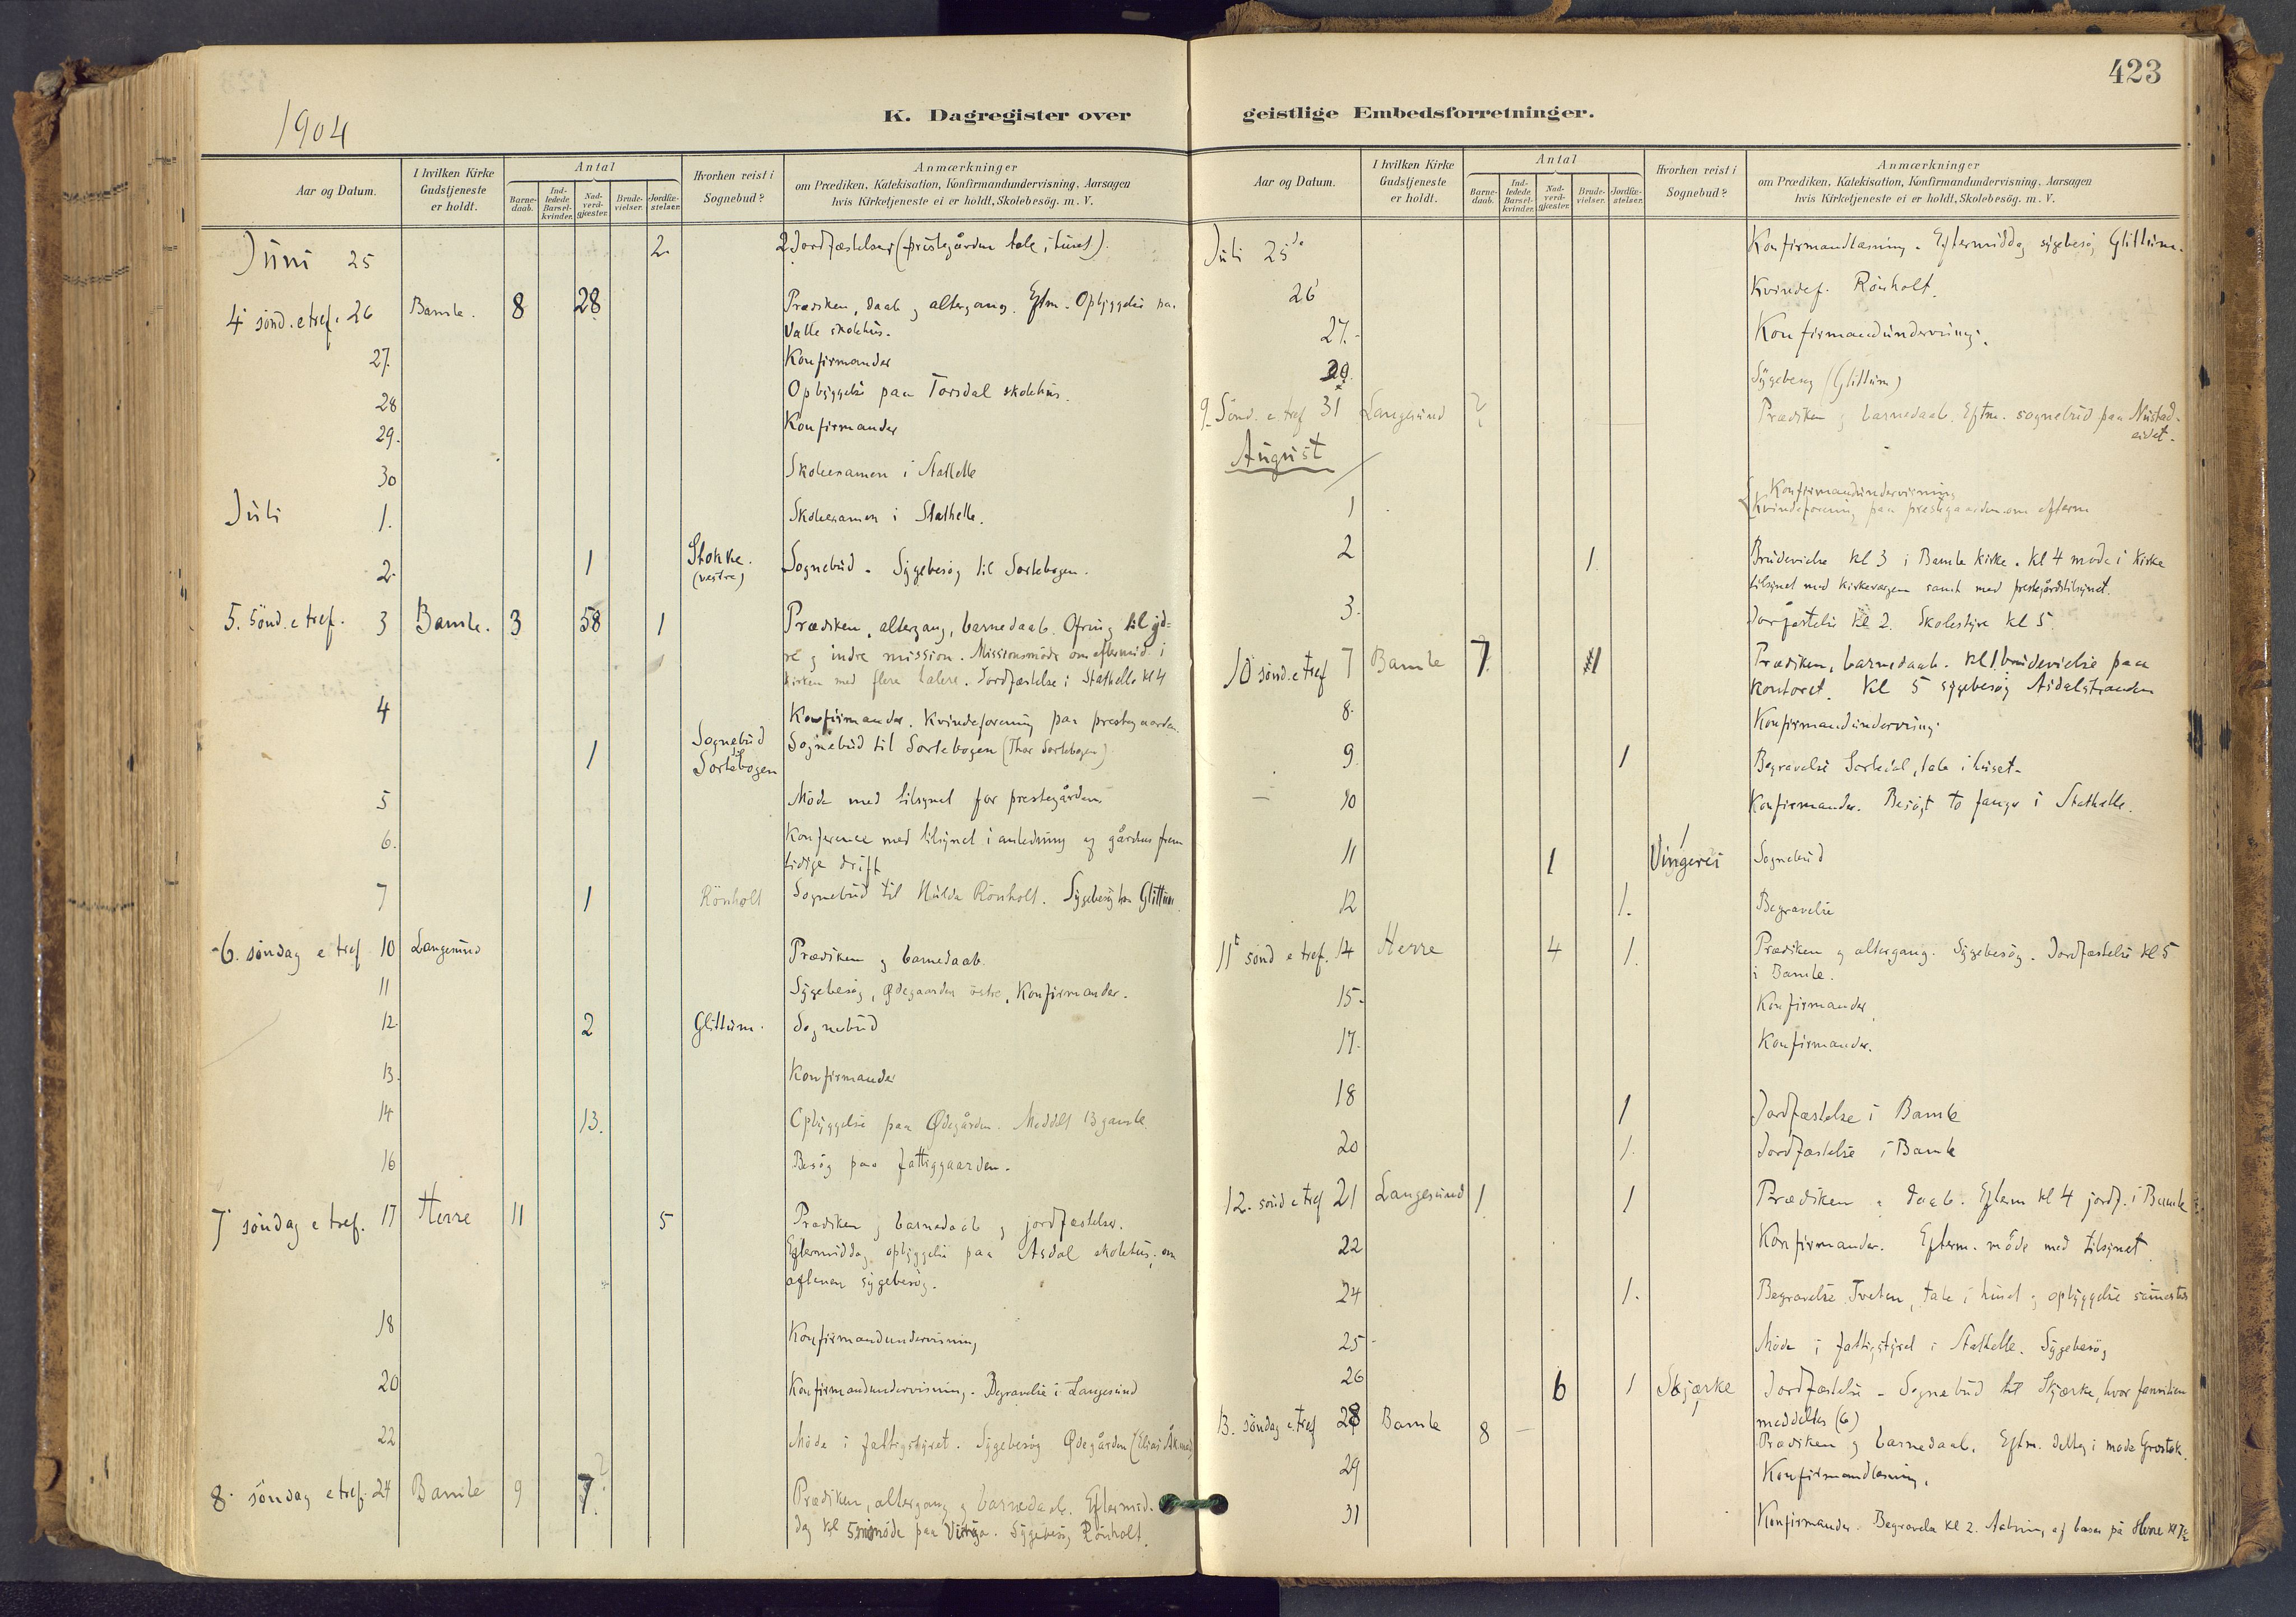 423
1904
K. Dagregister over geistlige Embedsforretninger.
Aar og Datum.
I hvilken Kirke Gudstjeneste er holdt.
Antal
Barne-daab.
Ind-ledede Barsel-kvinder.
Nad-verd-gjæster.
Brude-vielser.
Jordfæ-stelser.
Hvorhen reist i Sognebud?
Anmærkninger
om Prædiken, Katekisation, Konfirmandundervisning, Aarsagen
hvis Kirketjeneste ei er holdt, Skolebesög. m. V.
Juni 25 2 2 Jordfæstelser (prestegården tale i huset).
4 sönd. e tref. 26 Bamle. 8 28 Prædiken, daab og altergang. Eftm. Opbyggelse paa
Valle skolehus.
27. Konfirmander
28 Opbyggelse paa Torsdal skolehus.
29. Konfirmander
30 Skoleexamen i Stathelle
Juli 1. Skoleexamen i Stathelle.
2. 1 Stokke. (vestre) Sognebud - Sygebesög til Sortebogen.
5. sönd. e tref. 3 Bamle. 3 58 1 Prædiken, altergang, barnedaab. Ofring til yd-
re og indre mission. Missionsmöde om eftermid. i
kirken med flere talere. Jordfæstelse i Stathelle kl 4
4 Konfirmander. Kvindeforening paa prestegaarden.
1 Sognebud Sortebogen Sognebud til Sortebogen (Thor Sortebogen)
5 Möde med tilsynet for prestegården
6. Konference med tilsynet i anledning af gårdens frem
tidige drift
7 1 Rönholt Sognebud til Hulda Rönholt. Sygebesög hos Glittum
6. söndag e tref 10 Langesund Prædiken og barnedaab
11 Sygebesög, Ødegaarden östre, Konfirmander.
12. 2 Glittum. Sognebud
13. Konfirmander
14 13. Opbyggelse paa Ødegården. Meddelt 13 gamle
16 Besög paa fattiggaarden.
7 söndag e tref. 17 Herre 11 5 Prædiken og barnedaab og jordfæstelser.
Eftermiddag opbyggelse paa Asdal skolehus; om
aftenen sygebesög.
18 Konfirmandundervisning
20 Konfirmandundervisning. Begravelse i Langesund
22 Möde i fattigstyret. Sygebesög Ødegården (Elias
8. söndag e tref. 24 Bamle 9 7 ? Prædiken, altergang og barnedaab. Eftermid-
dag kl 5 möde paa. Sygebesög Rönholt.
Aar og Datum.
I hvilken Kirke Gudstjeneste er holdt.
Antal
Barne-daab.
Ind-ledede Barsel-kvinder.
Nad-verd-gjæster.
Brude-vielser.
Jordfæ-stelser.
Hvorhen reist i Sognebud?
Anmærkninger
om Prædiken, Katekisation, Konfirmandundervisning, Aarsagen
hvis Kirketjeneste ei er holdt, Skolebesög. m. V.
Juli 25 Konfirmandlæsning. Eftermiddag sygebesög Glittum.
26 Kvindef. Rönholt.
27. Konfirmandundervisning.
29. Sygebesög (Glittum)
9. Sönd. e tref 31 Langesund ? Prædiken og barnedaab. Eftm. sognebud paa Nustad-
eidet.
August
1 Konfirmandundervisning
Kvindeforening paa prestegaarden om efterm
2 1. Brudevielse kl 3 i Bamle kirke. kl 4 möde i kirke
tilsynet med kirkeværgen samt med prestegårdstilsynet.
3. Jordfæstelse kl 2. Skolestyre kl 5.
10 sönd. e tref 7 Bamle 7. 1 Prædiken, barnedaab. kl 1 brudevielse paa
kontoret. Kl 5 sygebesög Aidalstranden
8. Konfirmandundervisning.
9 1 Begravelse, tale i huset.
10 Konfirmander. Besögt to fanger i Stathelle.
11 1 Vingerei Sognebud
12 1. Begravelse
11t sönd e tref. 14 Herre 4 1. Prædiken og altergang. Sygebesög. Jordfæstelse kl 5
i Bamle.
15. Konfirmander
17. Konfirmander.
18 1 Jordfæstelse i Bamle
20 1. Jordfæstelse i Bamle
12. sönd e tref 21 Langesund 1 1 Prædiken, daab. Efterm kl 4 jordf. i Bamle
22 Konfirmander. Efterm. möde med tilsynet
24 1. Begravelse Tveten, tale i huset og opbyggelse sammesteds
25 Möde i fattigstyret i Stathelle. Sygebesög
26 6 1 Skjærke Jordfæstelse - Sognebud til Skjærke, hvor familien
meddeltes (6)
13. söndag e. tref 28 Bamle 8 Prædiken og barnedaab. Eftm. deltog i möde Grostok.
29 Konfirmandlæsning.
31 Konfirmander. Begravelse kl 2. af basar på Herre kl 7½